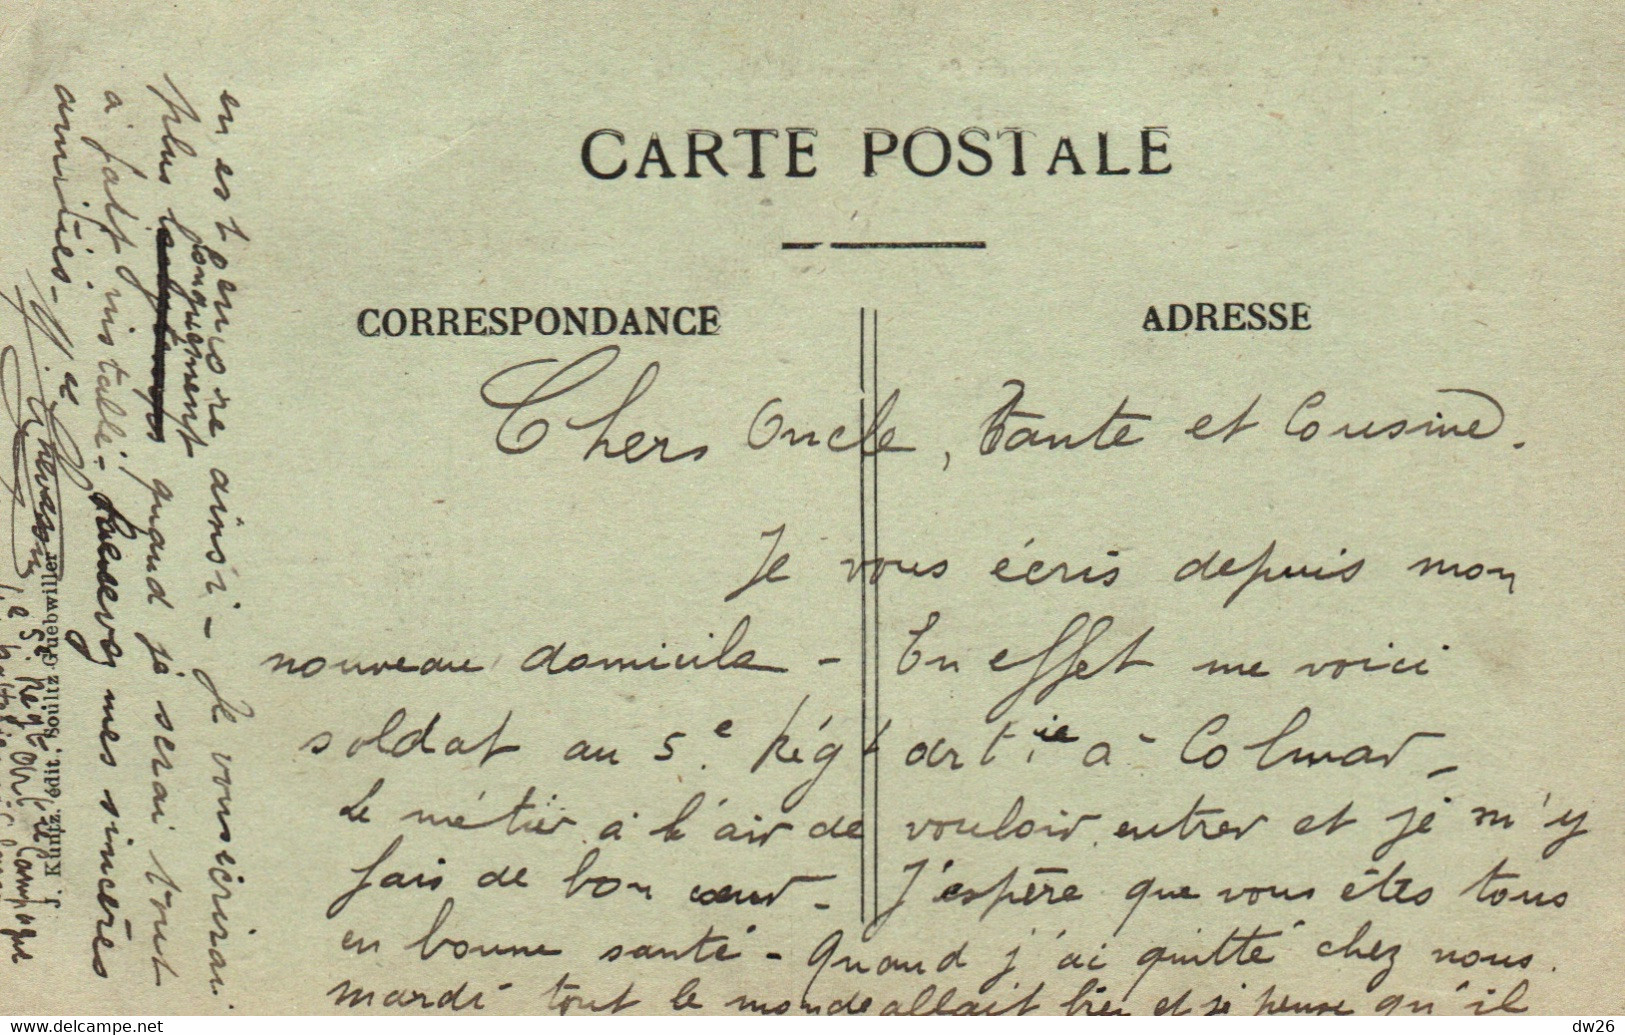 CARTE POSTALE
CORRESPONDANCE
ADRESSE
Chers Oncle, Tante et Cousine.
Je vous écris depuis mon
nouveau domicile - En effet me voici
soldat au 5e. Régt art.ie à Colmar -
Le métier à l'air de vouloir entrer et je m'y
fais de bon cœur - J'espère que vous êtes tous
en bonne santé - Quand j'ai quitté chez nous
mardi tout le monde allait bien et je pense qu'il
en est encore ainsi - Je vous écrirai
plus longuement quand je serai tout
à fait installé - Recevez mes sincères
amitiés -
5e Régt
Campagne
J. Kuntz. édit. Soultz Guebwiller
www.delcampe.net
dw26